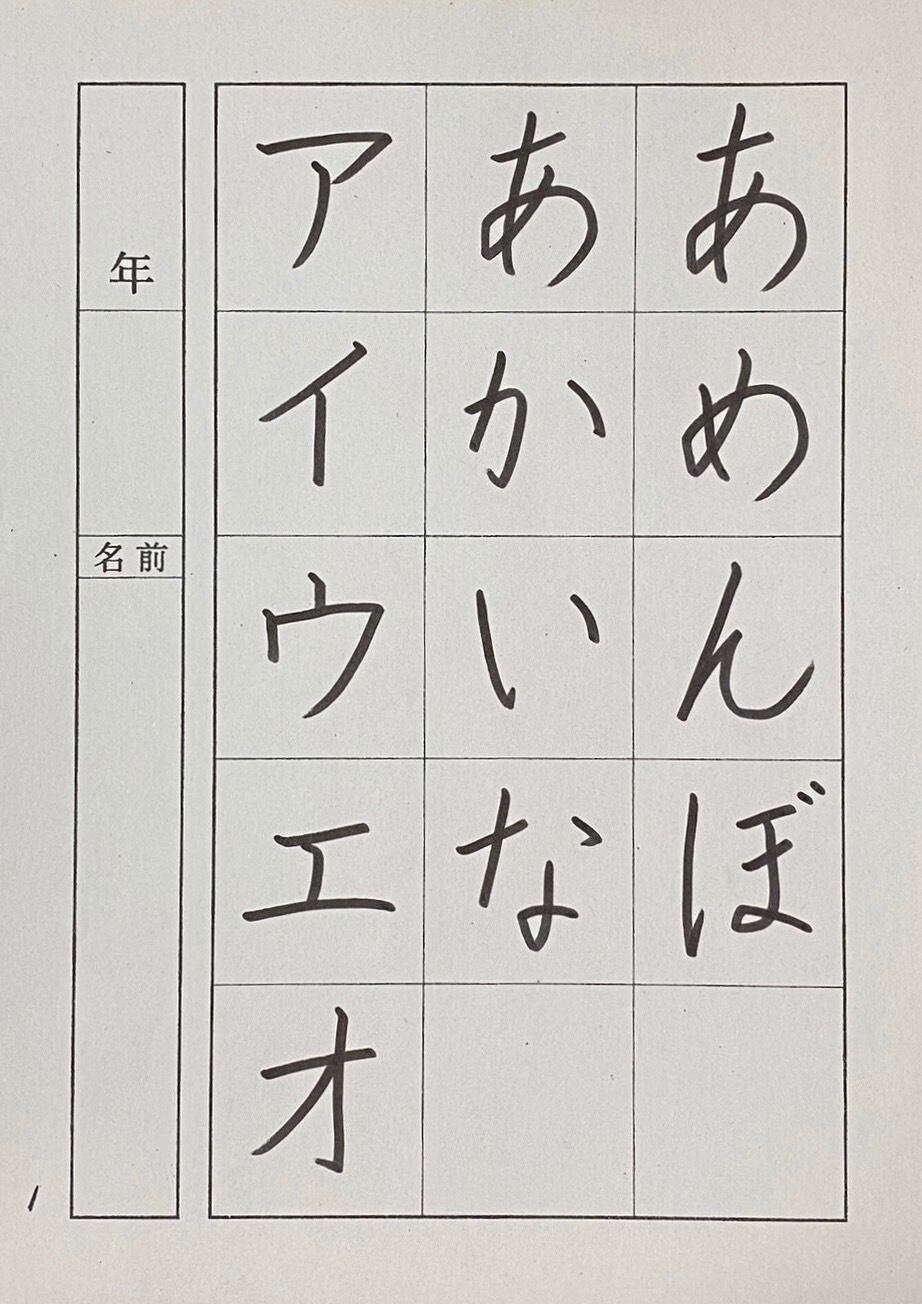 あめんぼ
あかいな
アイウエオ
年
名前
1